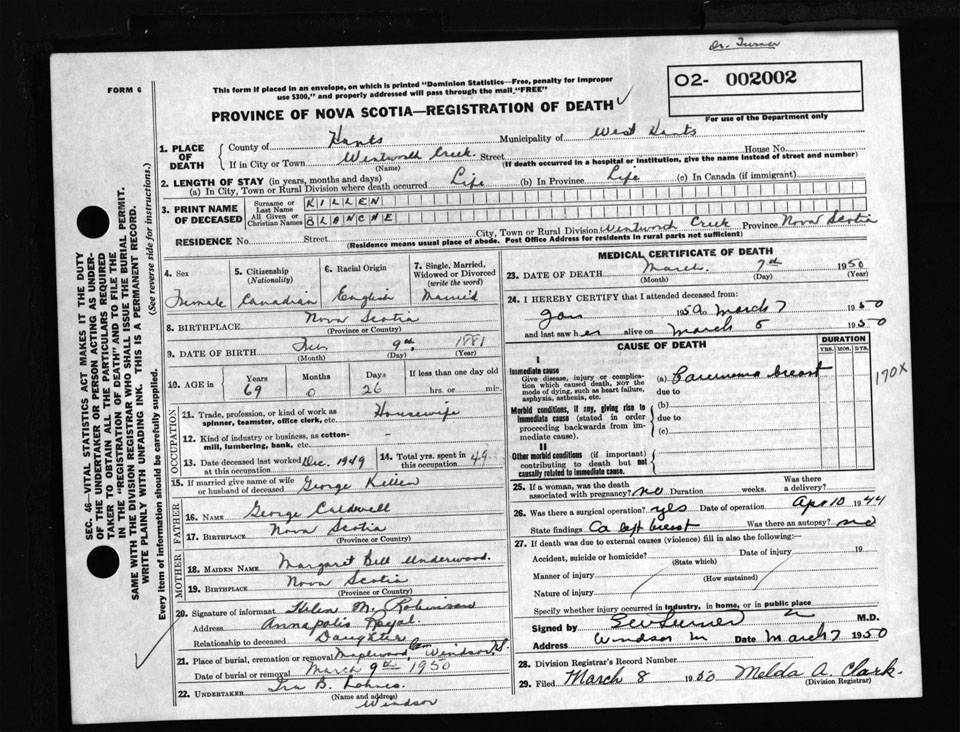 Dr. Turner
FORM 6
This form if placed in an envelope, on which is printed "Dominion Statistics—Free, penalty for improper
use $300," and properly addressed will pass through the mail "FREE"
O2- 002002
For use of the Department only
PROVINCE OF NOVA SCOTIA—REGISTRATION OF DEATH
1. PLACE OF DEATH County of Hants Municipality of West Hants
If in City or Town Wentworth Creek. Street House No.
(Name) (If death occurred in a hospital or institution, give the name instead of street and number)
2. LENGTH OF STAY (in years, months and days)
(a) In City, Town or Rural Division where death occurred Life (b) In Province Life (c) In Canada (if immigrant)
3. PRINT NAME OF DECEASED Surname or Last Name KILLEN
All Given or Christian Names BLANCHE
RESIDENCE No. Street City, Town or Rural Division Wentworth Creek Province Nova Scotia
(Residence means usual place of abode. Post Office Address for residents in rural parts not sufficient)
4. Sex 5. Citizenship (Nationality) 6. Racial Origin 7. Single, Married, Widowed or Divorced (write the word)
Female Canadian English Married
8. BIRTHPLACE Nova Scotia
(Province or Country)
9. DATE OF BIRTH Feb 9th, 1881
(Month) (Day) (Year)
10. AGE in Years Months Days If less than one day old
69 0 26 hrs. or min.
OCCUPATION
11. Trade, profession, or kind of work as spinner, teamster, office clerk, etc. Housewife
12. Kind of industry or business, as cotton-mill, lumbering, bank, etc. -
13. Date deceased last worked at this occupation Dec. 1949 14. Total yrs. spent in this occupation 49
15. If married give name of wife or husband of deceased George Killen
FATHER
16. NAME George Caldwell
17. BIRTHPLACE Nova Scotia
(Province or Country)
MOTHER
18. MAIDEN NAME Margaret Bell Underwood.
19. BIRTHPLACE Nova Scotia
(Province or Country)
20. Signature of informant Helen M. Robinson
Address Annapolis Royal.
Relationship to deceased Daughter
21. Place of burial, cremation or removal Maplewood Cem Windsor, N.S.
Date of burial or removal March 9th 1950
22. UNDERTAKER Ira B. Lohnes.
(Name and address)
Windsor
MEDICAL CERTIFICATE OF DEATH
23. DATE OF DEATH March 7th 1950
(Month) (Day) (Year)
24. I HEREBY CERTIFY that I attended deceased from:
Jan 1950 to March 7 1950
and last saw her alive on March 5 1950
CAUSE OF DEATH DURATION
YRS. MOS. DYS.
I
Immediate cause
Give disease, injury or complication which caused death, not the mode of dying, such as heart failure, asphyxia, asthenia, etc.
(a) Carcinoma breast
due to
170X
Morbid conditions, if any, giving rise to immediate cause (stated in order proceeding backwards from immediate cause).
(b)
due to
(c)
II
Other morbid conditions (if important) contributing to death but not causally related to immediate cause.
25. If a woman, was the death associated with pregnancy? no Duration weeks. Was there a delivery?
26. Was there a surgical operation? yes Date of operation Apr 10 1944
State findings Ca left breast Was there an autopsy? no
27. If death was due to external causes (violence) fill in also the following:—
Accident, suicide or homicide? Date of injury 19
(State which)
Manner of injury (How sustained)
Nature of injury
Specify whether injury occurred in industry, in home, or in public place
Signed by M.D.
Address Windsor Date March 7 1950
28. Division Registrar's Record Number
29. Filed March 8 1950 Melda A. Clark.
(Division Registrar)
SEC. 46—VITAL STATISTICS ACT MAKES IT THE DUTY
OF THE UNDERTAKER OR PERSON ACTING AS UNDER-
TAKER TO OBTAIN ALL THE PARTICULARS REQUIRED
IN THE "REGISTRATION OF DEATH" AND TO FILE THE
SAME WITH THE DIVISION REGISTRAR WHO SHALL ISSUE THE BURIAL PERMIT.
WRITE PLAINLY WITH UNFADING INK. THIS IS A PERMANENT RECORD.
(See reverse side for instructions.)
Every item of information should be carefully supplied.